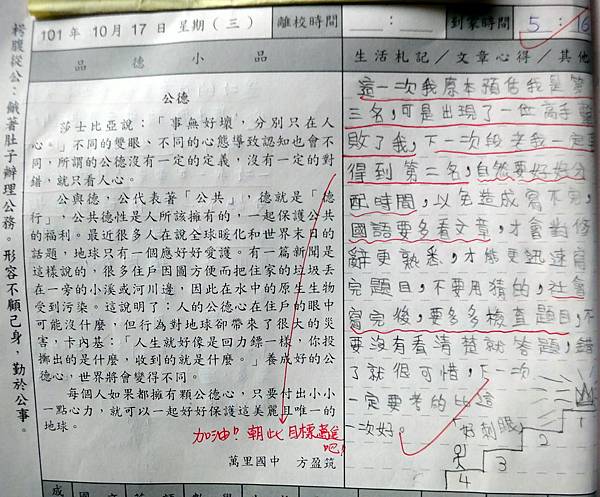 枵腹從公：餓著肚子辦理公務。形容不顧己身，勤於公事。
101 年 10 月 17 日 星期 ( 三 )
離校時間
：
到家時間
5：16
品德小品
生活札記／文章心得／其他
公德
莎士比亞說：「事無好壞，分別只在人
心。」不同的雙眼、不同的心態導致認知也會不
同，所謂的公德沒有一定的定義，沒有一定的對
錯，就只看人心。
公與德，公代表著「公共」，德就是「德
行」，公共德性是人所該擁有的，一起保護公共
的福利。最近很多人在說全球暖化和世界末日的
話題，地球只有一個應好好愛護。有一篇新聞是
這樣說的，很多住戶因圖方便而把住家的垃圾丟
在一旁的小溪或河川邊，因此在水中的原生生物
受到污染。這說明了：人的公德心在住戶的眼中
可能沒什麼，但行為對地球卻帶來了很大的災
害，卡內基：「人生就好像是回力鏢一樣，你投
擲出的是什麼，收到的就是什麼。」養成好的公
德心，世界將會變得不同。
每個人如果都擁有顆公德心，只要付出小小
一點心力，就可以一起好好保護這美麗且唯一的
地球。
萬里國中　方盈筑
這一次我原本預估我是第
三名，可是出現了一位高手擊
敗了我，下一次段考我一定要
得到第二名，自然要好好分
配時間，以免造成寫不完，
國語要多看文章，才會對修
辭更熟悉，才能更迅速寫
完題目，不要用猜的，社會
寫完後，要多多檢查題目，不
要沒有看清楚就答題，錯
了就很可惜，下一次
一定要考的比這
一次好。
「好刺眼」
1
2
3
4
加油!! 朝此目標邁進
吧!